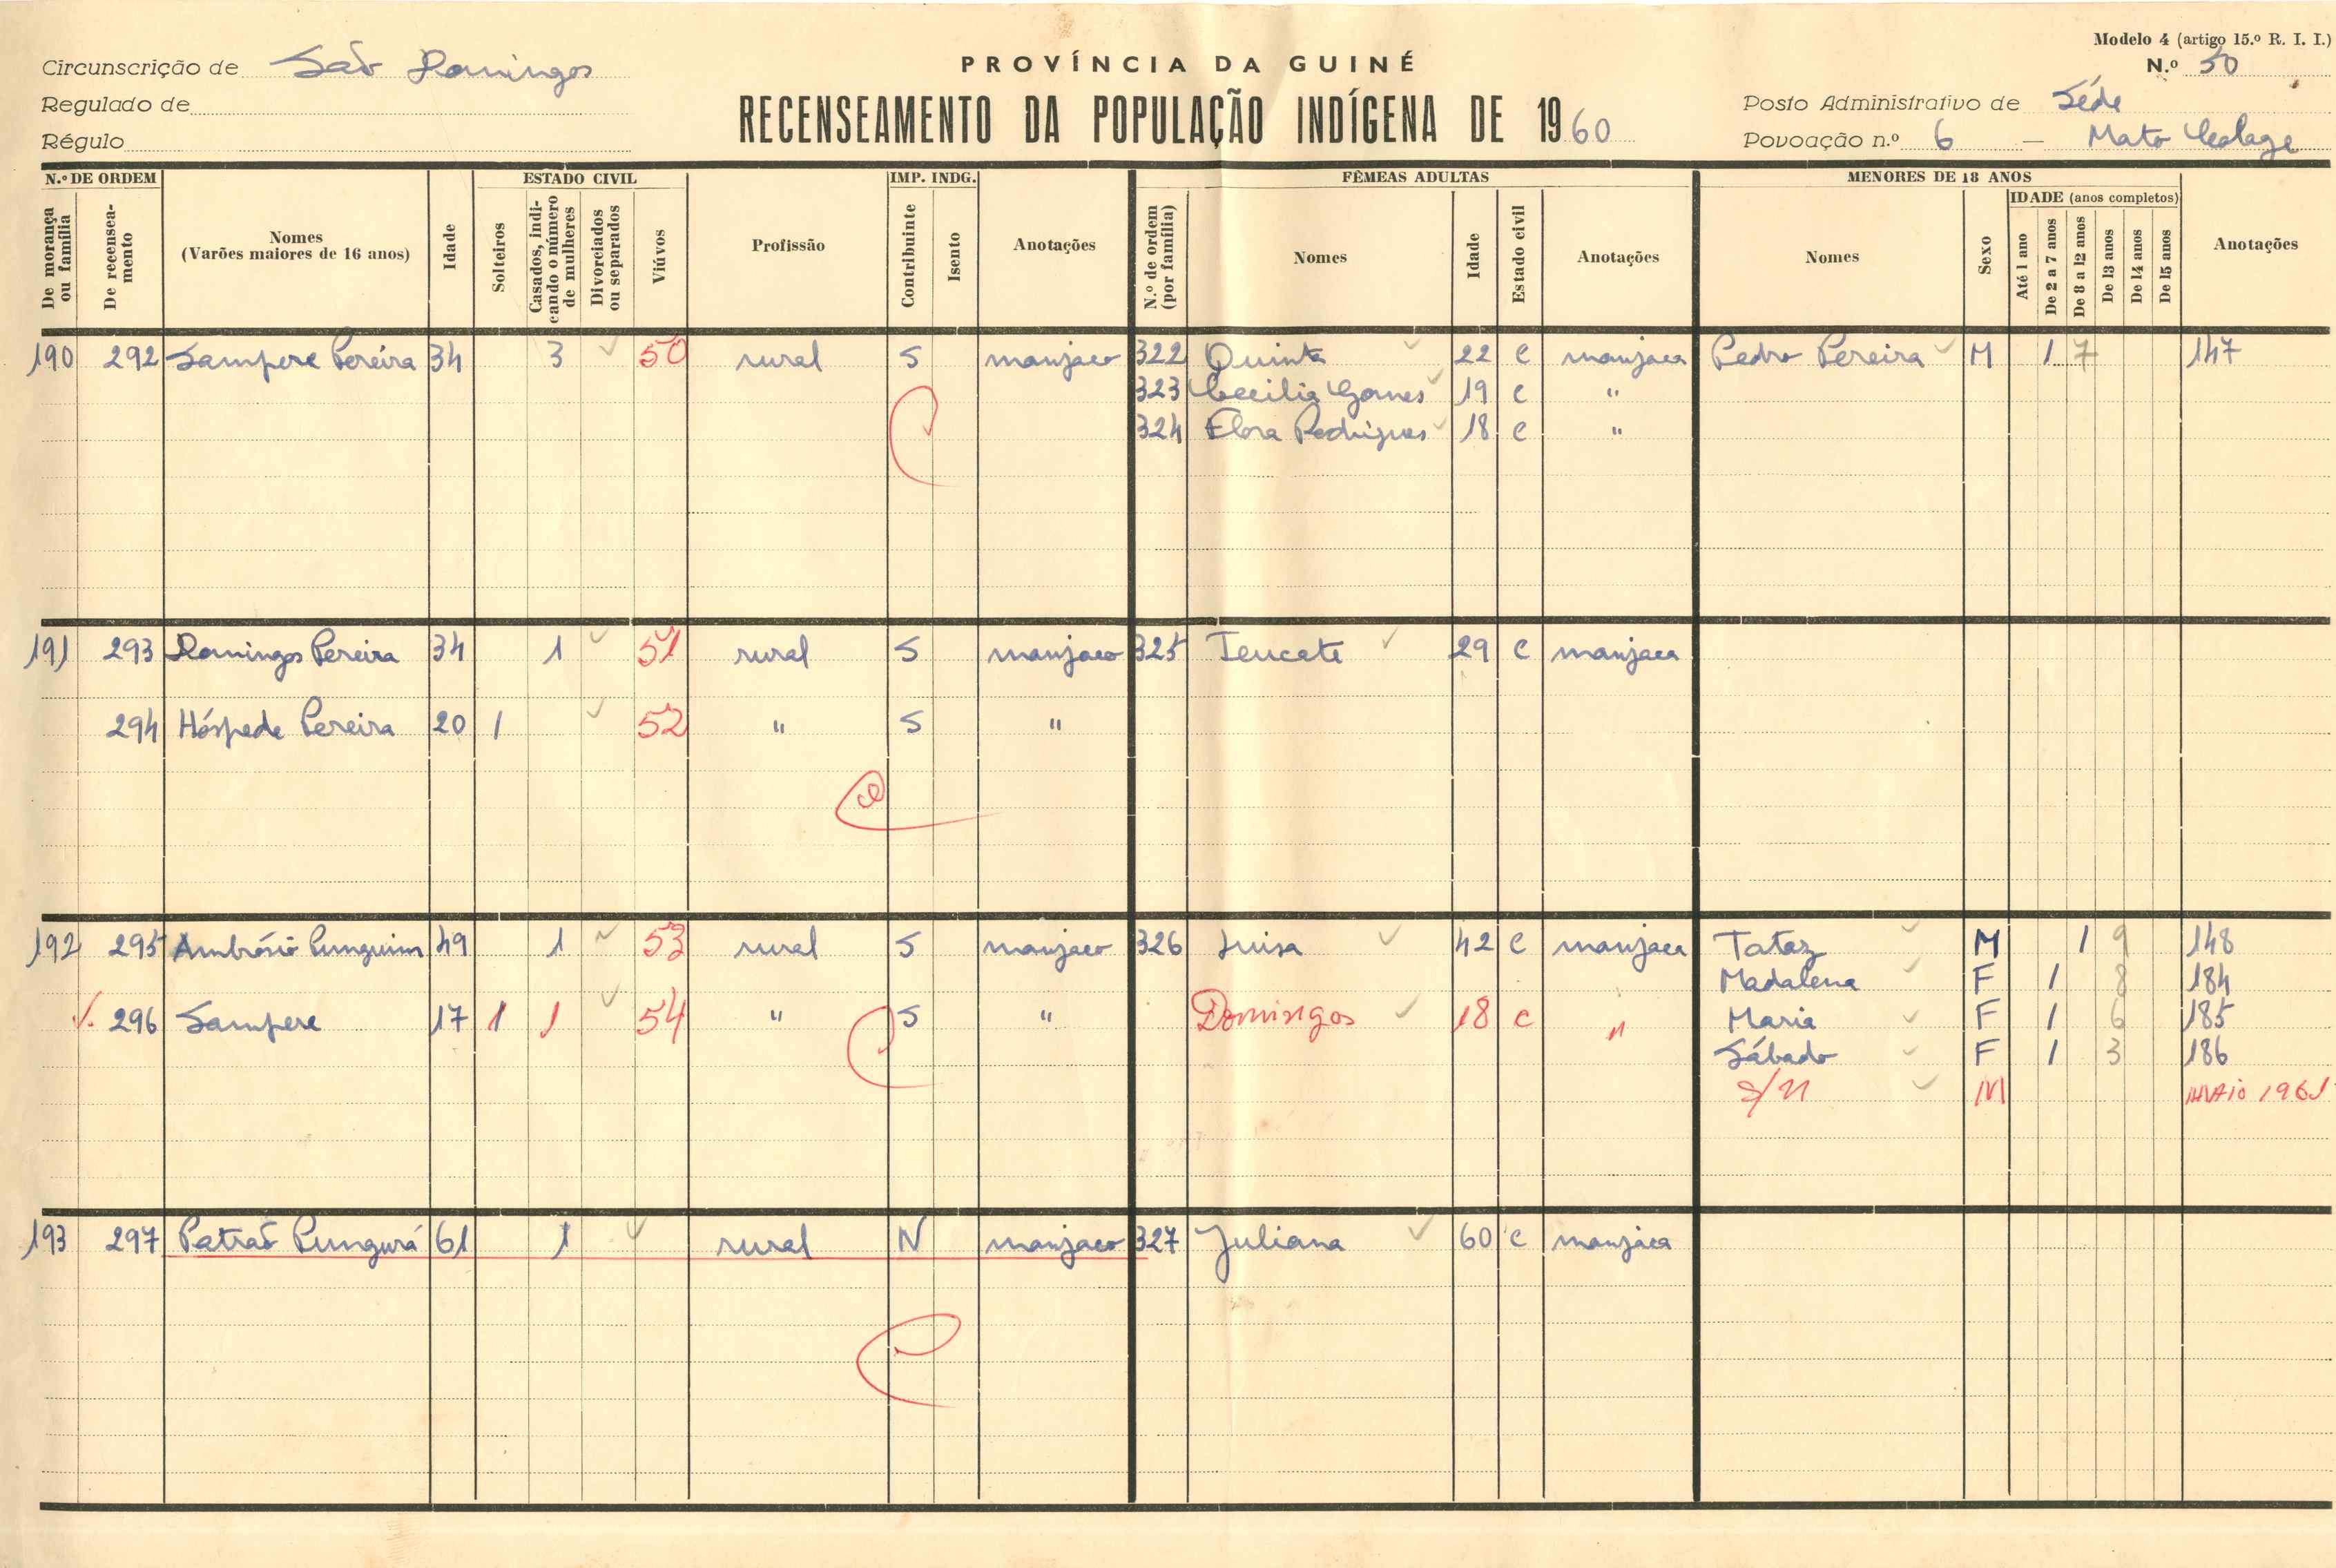 Modelo 4 (artigo 15.º R. I. I.)
Circunscrição de São Domingos
PROVÍNCIA DA GUINÉ
N.º 50
Regulado de
RECENSEAMENTO DA POPULAÇÃO INDÍGENA DE 1960
Posto Administrativo de Séde
Régulo
Povoação n.º 6 — Mato
N.º DE ORDEM
ESTADO CIVIL
IMP. INDG.
FÊMEAS ADULTAS
MENORES DE 18 ANOS
De morança ou família
De recensea-mento
Nomes
(Varões maiores de 16 anos)
Idade
Solteiros
Casados, indi-cando o número de mulheres
Divorciados ou separados
Viúvos
Profissão
Contribuinte
Isento
Anotações
N.º de ordem (por família)
Nomes
Idade
Estado civil
Anotações
Nomes
Sexo
IDADE (anos completos)
Até 1 ano
De 2 a 7 anos
De 8 a 12 anos
De 13 anos
De 14 anos
De 15 anos
Anotações
190 292 Sampere Pereira 34 3 50 rural S manjaco 322 Quinta 22 c manjaca Pedro Pereira M 1 7 147
323 Cecilia Gomes 19 c "
324 Flora Rodrigues 18 c "
191 293 Domingos Pereira 34 1 51 rural S manjaco 325 Teucate 29 c manjaca
294 Hóspede Pereira 20 1 52 " S "
192 295 Ambrósio Punguim 49 1 53 rural S manjaco 326 Luisa 42 c manjaca Tataz M 1 9 148
Madalena F 1 8 184
296 Sampere 17 1 1 54 " S " Domingos 18 c " Maria F 1 6 185
Sábado F 1 3 186
S/N M 1961
193 297 Patrão Pungurá 61 1 rural N manjaco 327 Juliana 60 c manjaca